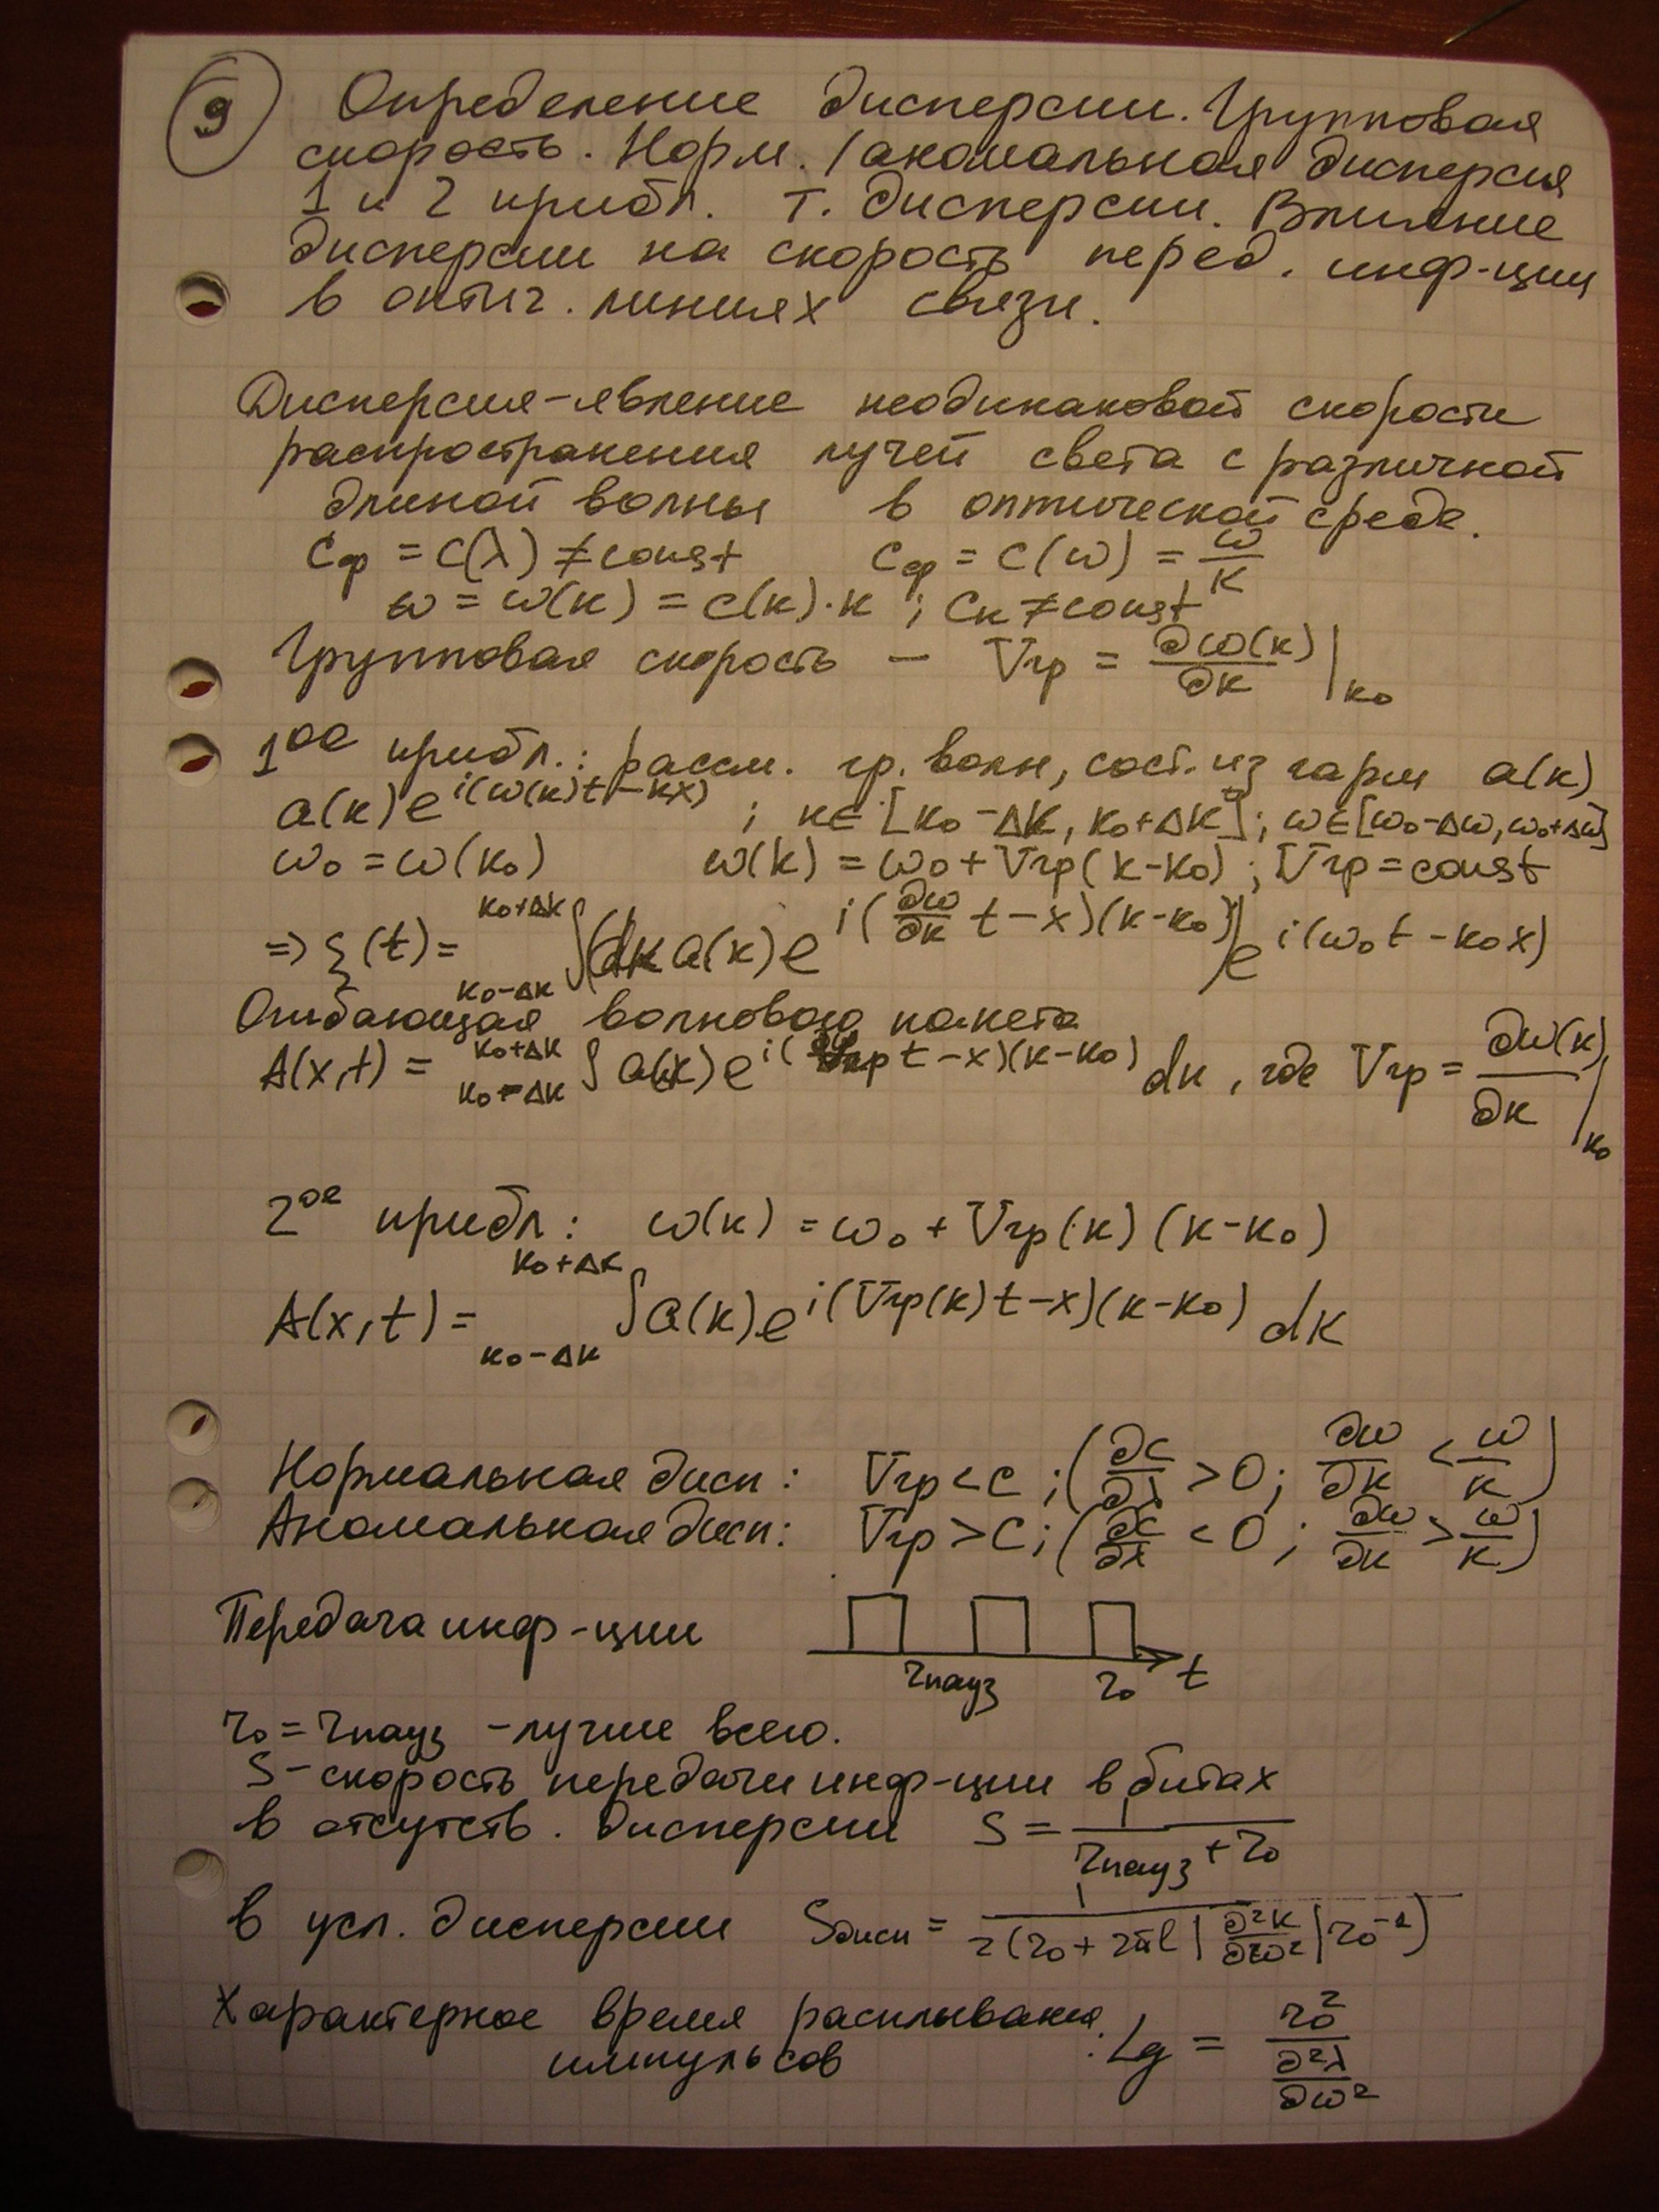 9 Определение дисперсии. Групповая
скорость. Норм. /аномальная дисперсия
1 и 2 прибл. т. дисперсии. Влияние
дисперсии на скорость перед. инф-ции
в оптич. линиях связи.
Дисперсия-явление неодинаковой скорости
распространения лучей света с различной
длиной волны в оптической среде.
Cф = C(λ) ≠ const Cф = C(ω) = ω/k
ω = ω(k) = C(k)·k ; Ck ≠ const
Групповая скорость — Vгр = ∂ω(k)/∂k |k₀
1ое прибл.: рассм. гр. волн, сост. из гарм a(k)
a(k)e^{i(ω(k)t-kx)} ; k∈[k₀-Δk, k₀+Δk]; ω∈[ω₀-Δω, ω₀+Δω]
ω₀ = ω(k₀) ω(k) = ω₀ + Vгр(k-k₀) ; Vгр = const
=> ξ(t) = ∫_{k₀-Δk}^{k₀+Δk} (dk a(k)e^{i(∂ω/∂k t-x)(k-k₀)}) e^{i(ω₀t-k₀x)}
Огибающая волнового пакета
A(x,t) = ∫_{k₀-Δk}^{k₀+Δk} a(k)e^{i(Vгр t-x)(k-k₀)} dk , где Vгр = ∂ω(k)/∂k |k₀
2ое прибл: ω(k) = ω₀ + Vгр(k)(k-k₀)
A(x,t) = ∫_{k₀-Δk}^{k₀+Δk} a(k)e^{i(Vгр(k)t-x)(k-k₀)} dk
Нормальная дисп: Vгр < C ; (∂C/∂λ > 0; ∂ω/∂k < ω/k)
Аномальная дисп: Vгр > C; (∂C/∂λ < 0; ∂ω/∂k > ω/k)
Передача инф-ции
τпауз τ₀ t
τ₀ = τпауз - лучше всего.
S - скорость передачи инф-ции в битах
в отсутств. дисперсии S = 1/(τпауз + τ₀)
в усл. дисперсии Sдисп = 1/(2(τ₀ + 2πl |∂²k/∂ω²| τ₀⁻¹))
Характерное время расплывания: Lg = τ₀²/(∂²λ/∂ω²)
импульсов